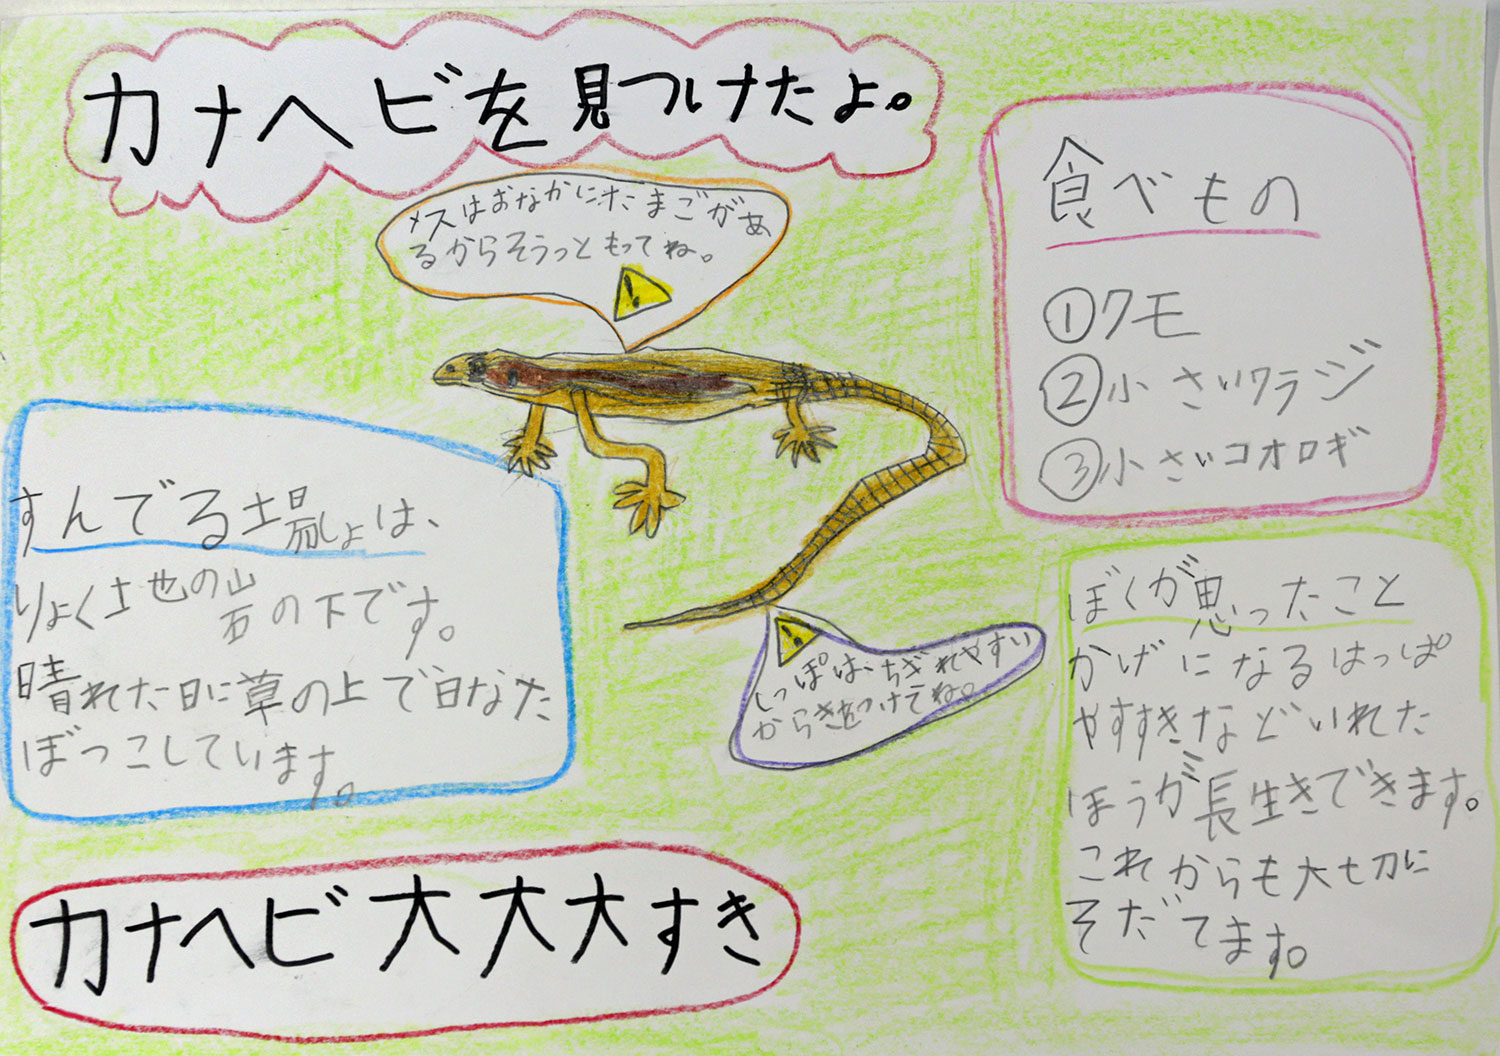 カナヘビを見つけたよ。
メスはおなかにたまごがあ
るからそうっともってね。
!
食べもの
①クモ
②小さいワラジ
③小さいコオロギ
すんでる場しょは、
りょく土也の岩の下です。
晴れた日に草の上で日なた
ぼっこしています。
!
しっぽは、ちぎれやすい
からきをつけてね。
ぼくが思ったこと
かげになるはっぱ
やすすきなどいれた
ほうが長生きできます。
これからも大切に
そだてます。
カナヘビ大大大すき